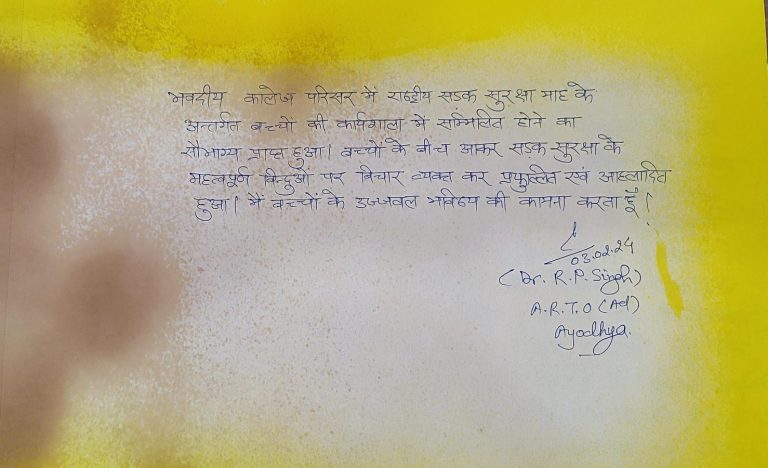 भवदीय कालेज परिसर में राष्ट्रीय सड़क सुरक्षा माह के
अन्तर्गत बच्चों की कार्यशाला में सम्मिलित होने का
सौभाग्य प्राप्त हुआ। बच्चों के बीच आकर सड़क सुरक्षा के
महत्वपूर्ण बिन्दुओं पर विचार व्यक्त कर प्रफुल्लित एवं आह्लादित
हुआ। मैं बच्चों के उज्जवल भविष्य की कामना करता हूँ।
03.02.24
(Dr. R.P. Singh)
A.R.T.O (Ad)
Ayodhya.